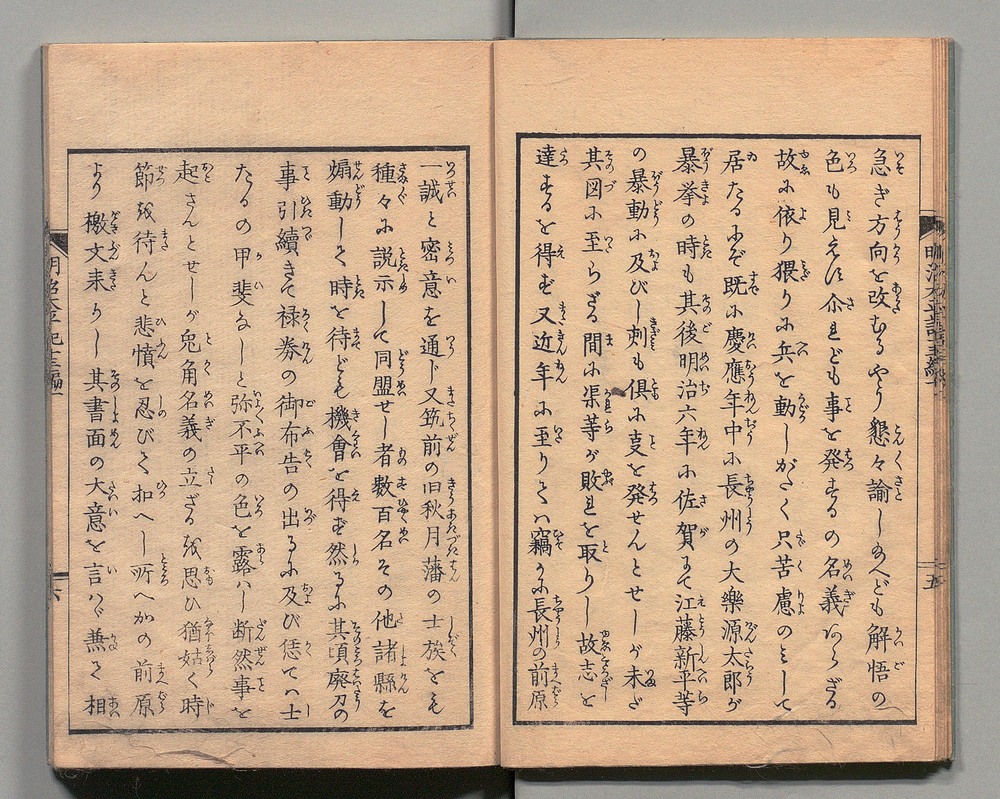 急ぎ方向を改むるやう懇々諭しゝへども解悟の
色も見えず尒れども事を発するの名義あらざる
故に依り猥りに兵を動しがたく只苦慮のみして
居たるにぞ既に慶應年中に長州の大樂源太郎が
暴挙の時も其後明治六年に佐賀にて江藤新平等
の暴動に及びし刺も倶に事を発せんとせしが未ざ
其図に至らざる間に渠等が敗れを取りし故志を
達するを得ず又近年に至りてハ竊かに長州の前原
一誠と密意を通じ又筑前の旧秋月藩の士族をも
種々に説示して同盟せし者數百名その他諸縣を
煽動して時を待ども機會を得ず然るに其頃廃刀の
事引續きて禄券の御布告の出るに及び恁てハ士
たるの甲斐なしと弥不平の色を露ハし断然事を
起さんとせしが兎角名義の立ざるを思ひ猶姑く時
節を待んと悲憤を忍びて扣へし所へかの前原
より檄文来りし其書面の大意を言ハゞ兼て相
明治太平記十三編一
六